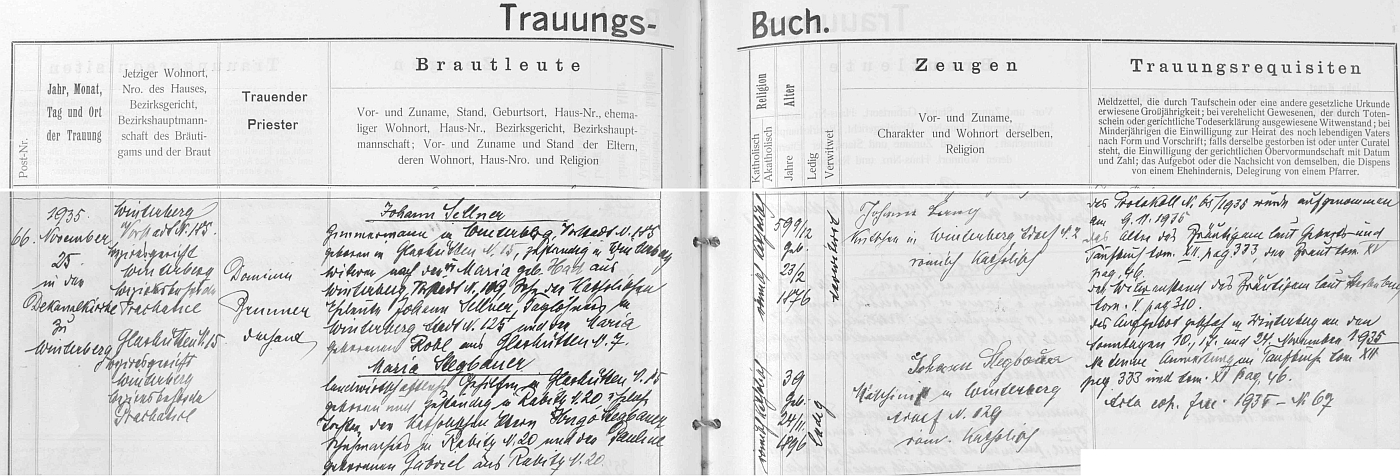 Trauungs-Buch.
Post-Nr.
Jahr, Monat,
Tag und Ort
der Trauung
Jetziger Wohnort,
Nro. des Hauses,
Bezirksgericht,
Bezirkshauptmann-
schaft des Bräuti-
gams und der Braut
Trauender
Priester
Brautleute
Vor- und Zuname, Stand, Geburtsort, Haus-Nr., ehema-
liger Wohnort, Haus-Nr., Bezirksgericht, Bezirkshaupt-
mannschaft; Vor- und Zuname und Stand der Eltern,
deren Wohnort, Haus-Nro. und Religion
Religion
Katholisch
Akatholisch
Alter
Jahre
Ledig
Verwitwet
Zeugen
Vor- und Zuname,
Charakter und Wohnort derselben,
Religion
Trauungsrequisiten
Meldzettel, die durch Taufschein oder eine andere gesetzliche Urkunde
erwiesene Großjährigkeit; bei verehelicht Gewesenen, der durch Toten-
schein oder gerichtliche Todeserklärung ausgewiesene Witwenstand; bei
Minderjährigen die Einwilligung zur Heirat des noch lebenden Vaters
nach Form und Vorschrift; falls derselbe gestorben ist oder unter Curatel
steht, die Einwilligung der gerichtlichen Obervormundschaft mit Datum
und Zahl; das Aufgebot oder die Nachsicht von demselben, die Dispens
von einem Ehehindernis, Delegirung von einem Pfarrer.
66.
1935.
November
25
in der
Dekanalkirche
zu
Winterberg
Winterberg
Vorstadt N. 185
Bezirksgericht
Winterberg
Bezirksbehörde
Prachatitz
Glashütten N. 15
Bezirksgericht
Winterberg
Bezirksbehörde
Prachatitz
Brunner
Dechant
Johann Sellner
Zimmermann in Winterberg, Vorstadt N. 185
geboren in Glashütten N. 15, zuständig in Winterberg
Witwer nach der Maria geb. aus
Winterberg, Vorstadt N. 109 Sohn des katholischen
Johann Sellner, Taglöhners in
Winterberg Stadt N. 125 und der Maria
geborenen aus Glashütten N. 7
Maria Stegbauer
Glashütten N. 15
geboren und zuständig in Rabitz N. 20
Tochter des katholischen Stegbauer
in Rabitz N. 20 und der Pauline
geborenen Gabriel aus Rabitz N. 20.
römisch katholisch
59 9/12
geb.
23/2
1876
verwitwet
römisch katholisch
39
geb.
24/11
1896
ledig
Johann
in Winterberg N. 2
römisch katholisch
Johann Stegbauer
in Winterberg
N. 129
röm. katholisch
Das Protokoll N. 61/1935 wurde aufgenommen
am 9. 11. 1935
Das Alter des Bräutigams laut Geburts- und
Taufbuch tom. XII. pag. 333, der Braut tom. XV
pag. 46.
Der Witwerstand des Bräutigams laut Sterbebuch
tom. X pag. 310.
Das Aufgebot geschah in Winterberg an den
Sonntagen 10., 17. und 24. November 1935
Anmerkung im Taufbuch tom. XII
pag. 333 und tom. XV pag. 46.
1935 – N. 67